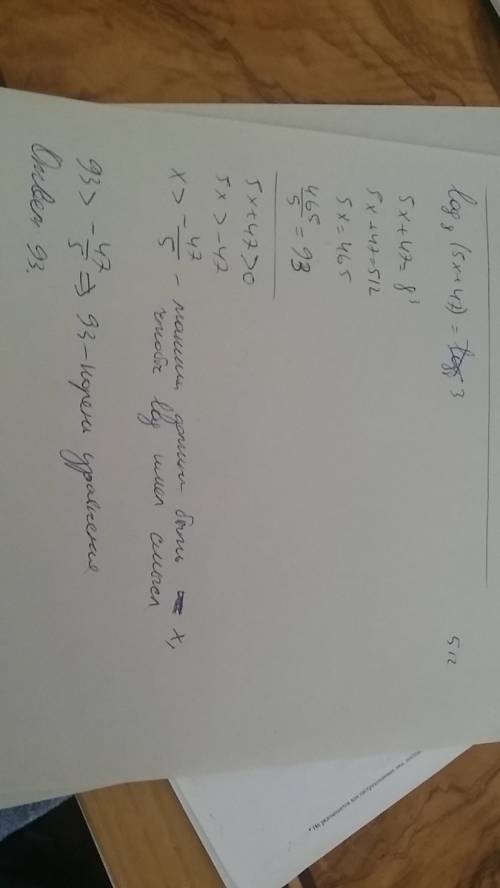 log₈ (5x+47) = 3
512
5x+47 = 8³
5x+47=512
5x=465
465/5 = 93
5x+47>0
5x > -47
x > - 47/5 - таким должен быть x,
чтобы log имел смысл
93 > - 47/5 ⇒ 93 - корень уравнения
Ответ 93.